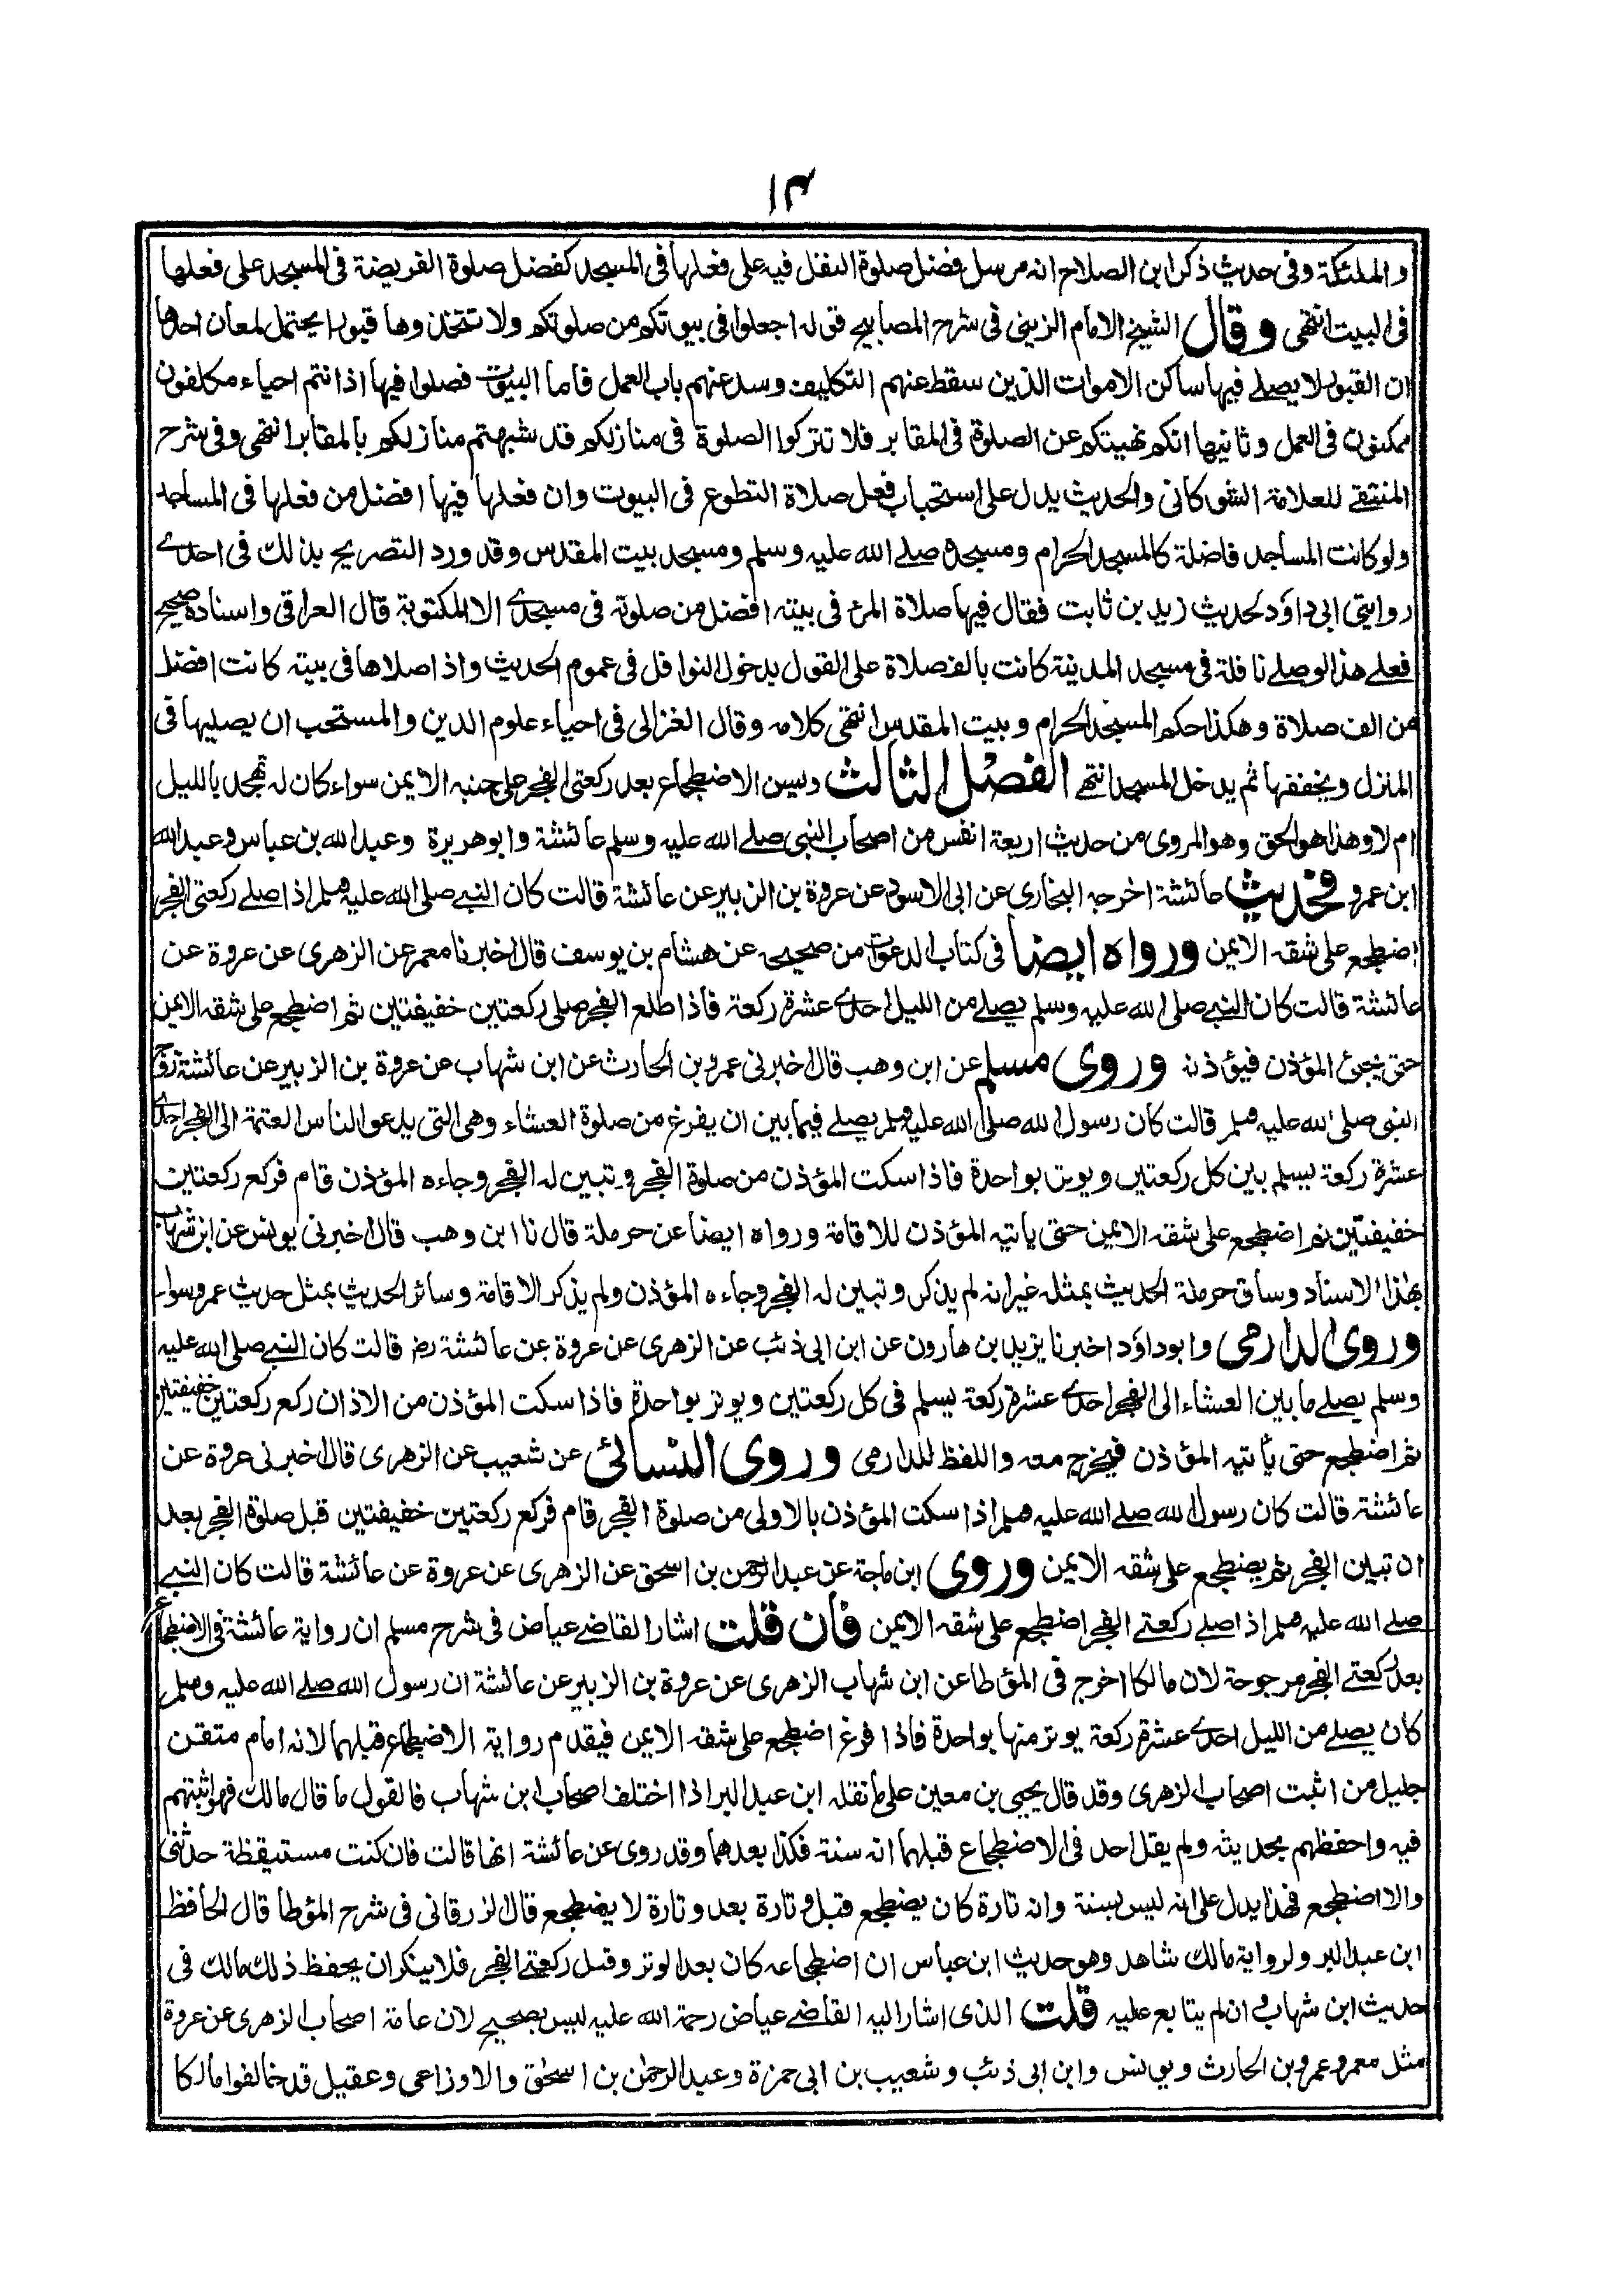 ١٣
و الملئكة وفي حديث ذكر ابن الصلاح انه مرسل فضل صلوة النفل فيه على فعلها في المسجد كفضل صلوة الفريضة في المسجد على فعلها
في البيت انتهى وقال الشيخ الامام الزيني في شرح المصابيح قوله اجعلوا في بيوتكم من صلوتكم ولا تتخذوها قبورا يحتمل لمعان احدها
ان القبور لا يصلے فيها ساكن الاموات الذين سقط عنهم التكليف وسد عنهم باب العمل فاما البيوت فصلوا فيها اذ انتم احياء مكلفون
ممكنون في العمل وثانيها انكم نهيتكم عن الصلوة في المقابر فلا تتركوا الصلوة في منازلكم قد شبهتم منازلكم بالمقابر انتهى وفي شرح
المنتقے للعلامة الشوكاني والحديث يدل على استحباب فعل صلاة التطوع في البيوت وان فعلها فيها افضل من فعلها في المساجد
ولو كانت المساجد فاضلة كالمسجد الحرام ومسجده صلے الله عليه وسلم ومسجد بيت المقدس وقد ورد التصريح بذلك في احدے
روايتي ابي داؤد لحديث زيد بن ثابت فقال فيها صلاة المرء في بيته افضل من صلوته في مسجدے الا المكتوبة قال العراقي واسناده صحيح
فعلے هذا لو صلے نافلة في مسجد المدينة كانت بالف صلاة على القول بدخول النوافل في عموم الحديث واذا صلاها في بيته كانت افضل
من الف صلاة وهكذا حكم المسجد الحرام وبيت المقدس انتهى كلامه وقال الغزالي في احياء علوم الدين والمستحب ان يصليها في
المنزل ويخففها ثم يدخل المسجد انتهے الفصل الثالث ويسن الاضطجاع بعد ركعتي الفجر على جنبه الايمن سواء كان له تهجد بالليل
ام لا وهذا هو الحق وهو المروي من حديث اربعة انفس من اصحاب النبي صلے الله عليه وسلم عائشة وابو هريرة وعبد الله بن عباس وعبد الله
ابن عمرو فحديث عائشة اخرجه البخاري عن ابي الاسود عن عروة بن الزبير عن عائشة قالت كان النبے صلى الله عليه وسلم اذا صلے ركعتي الفجر
اضطجع على شقه الايمن ورواه ايضا في كتاب الدعوات من صحيحه عن هشام بن يوسف قال اخبرنا معمر عن الزهري عن عروة عن
عائشة قالت كان النبے صلى الله عليه وسلم يصلے من الليل احدے عشرة ركعة فاذا طلع الفجر صلى ركعتين خفيفتين ثم اضطجع على شقه الايمن
حتى يجئ المؤذن فيؤذنه وروى مسلم عن ابن وهب قال اخبرني عمرو بن الحارث عن ابن شهاب عن عروة بن الزبير عن عائشة زوج
النبي صلى الله عليه وسلم قالت كان رسول الله صلى الله عليه وسلم يصلے فيما بين ان يفرغ من صلوة العشاء وهي التي يدعو الناس العتمة الى الفجر احدے
عشرة ركعة يسلم بين كل ركعتين ويوتر بواحدة فاذا سكت المؤذن من صلوة الفجر وتبين له الفجر وجاءه المؤذن قام فركع ركعتين
خفيفتين ثم اضطجع على شقه الايمن حتى ياتيه المؤذن للاقامة ورواه ايضا عن حرملة قال نا ابن وهب قال اخبرني يونس عن ابن شهاب
بهذا الاسناد وساق حرملة الحديث بمثله غير انه لم يذكر وتبين له الفجر وجاءه المؤذن ولم يذكر الاقامة وسائر الحديث بمثل حديث عمرو سواء
وروى الدارمي وابو داؤد اخبرنا يزيد بن هارون عن ابن ابي ذئب عن الزهري عن عروة عن عائشة رض قالت كان النبے صلى الله عليه
وسلم يصلے ما بين العشاء الى الفجر احدے عشرة ركعة يسلم في كل ركعتين ويوتر بواحدة فاذا سكت المؤذن من الاذان ركع ركعتين خفيفتين
ثم اضطجع حتى يأتيه المؤذن فيخرج معه واللفظ للدارمي وروى النسائي عن شعيب عن الزهري قال اخبرني عروة عن
عائشة قالت كان رسول الله صلے الله عليه وسلم اذا سكت المؤذن بالاولى من صلوة الفجر قام فركع ركعتين خفيفتين قبل صلوة الفجر بعد
ان تبين الفجر ثم يضطجع على شقه الايمن وروى ابن ماجة عن عبد الرحمن بن اسحق عن الزهري عن عروة عن عائشة قالت كان النبے
صلے الله عليه وسلم اذا صلے ركعتے الفجر اضطجع على شقه الايمن فان قلت اشار القاضے عياض في شرح مسلم ان رواية عائشة في الاضطجاع
بعد ركعتے الفجر مرجوحة لان مالكا اخرج في المؤطا عن ابن شهاب الزهري عن عروة بن الزبير عن عائشة ان رسول الله صلے الله عليه وسلم
كان يصلے من الليل احدے عشرة ركعة يوتر منها بواحدة فاذا فرغ اضطجع على شقه الايمن فيقدم رواية الاضطجاع قبلهما لانه امام متقن
جليل من اثبت اصحاب الزهري وقد قال يحيى بن معين على ما نقله ابن عبد البر اذا اختلف اصحاب ابن شهاب فالقول ما قال مالك فهو اثبتهم
فيه واحفظهم بحديثه ولم يقل احد في الاضطجاع قبلهما انه سنة فكذا بعدهما وقد روى عن عائشة انها قالت فان كنت مستيقظة حدثني
والا اضطجع فهذا يدل على انه ليس بسنة وانه تارة كان يضطجع قبل وتارة بعد وتارة لا يضطجع قال الزرقاني في شرح المؤطا قال الحافظ
ابن عبد البر ولرواية مالك شاهد وهو حديث ابن عباس ان اضطجاعه كان بعد الوتر وقبل ركعتے الفجر فلا ينكر ان يحفظ ذلك مالك في
حديث ابن شهاب وان لم يتابع عليه قلت الذي اشار اليه القاضے عياض رحمة الله عليه ليس بصحيح لان عامة اصحاب الزهري عن عروة
مثل معمر وعمرو بن الحارث ويونس وابن ابي ذئب وشعيب بن ابي حمزة وعبد الرحمٰن بن اسحٰق والاوزاعي وعقيل قد خالفوا مالكا